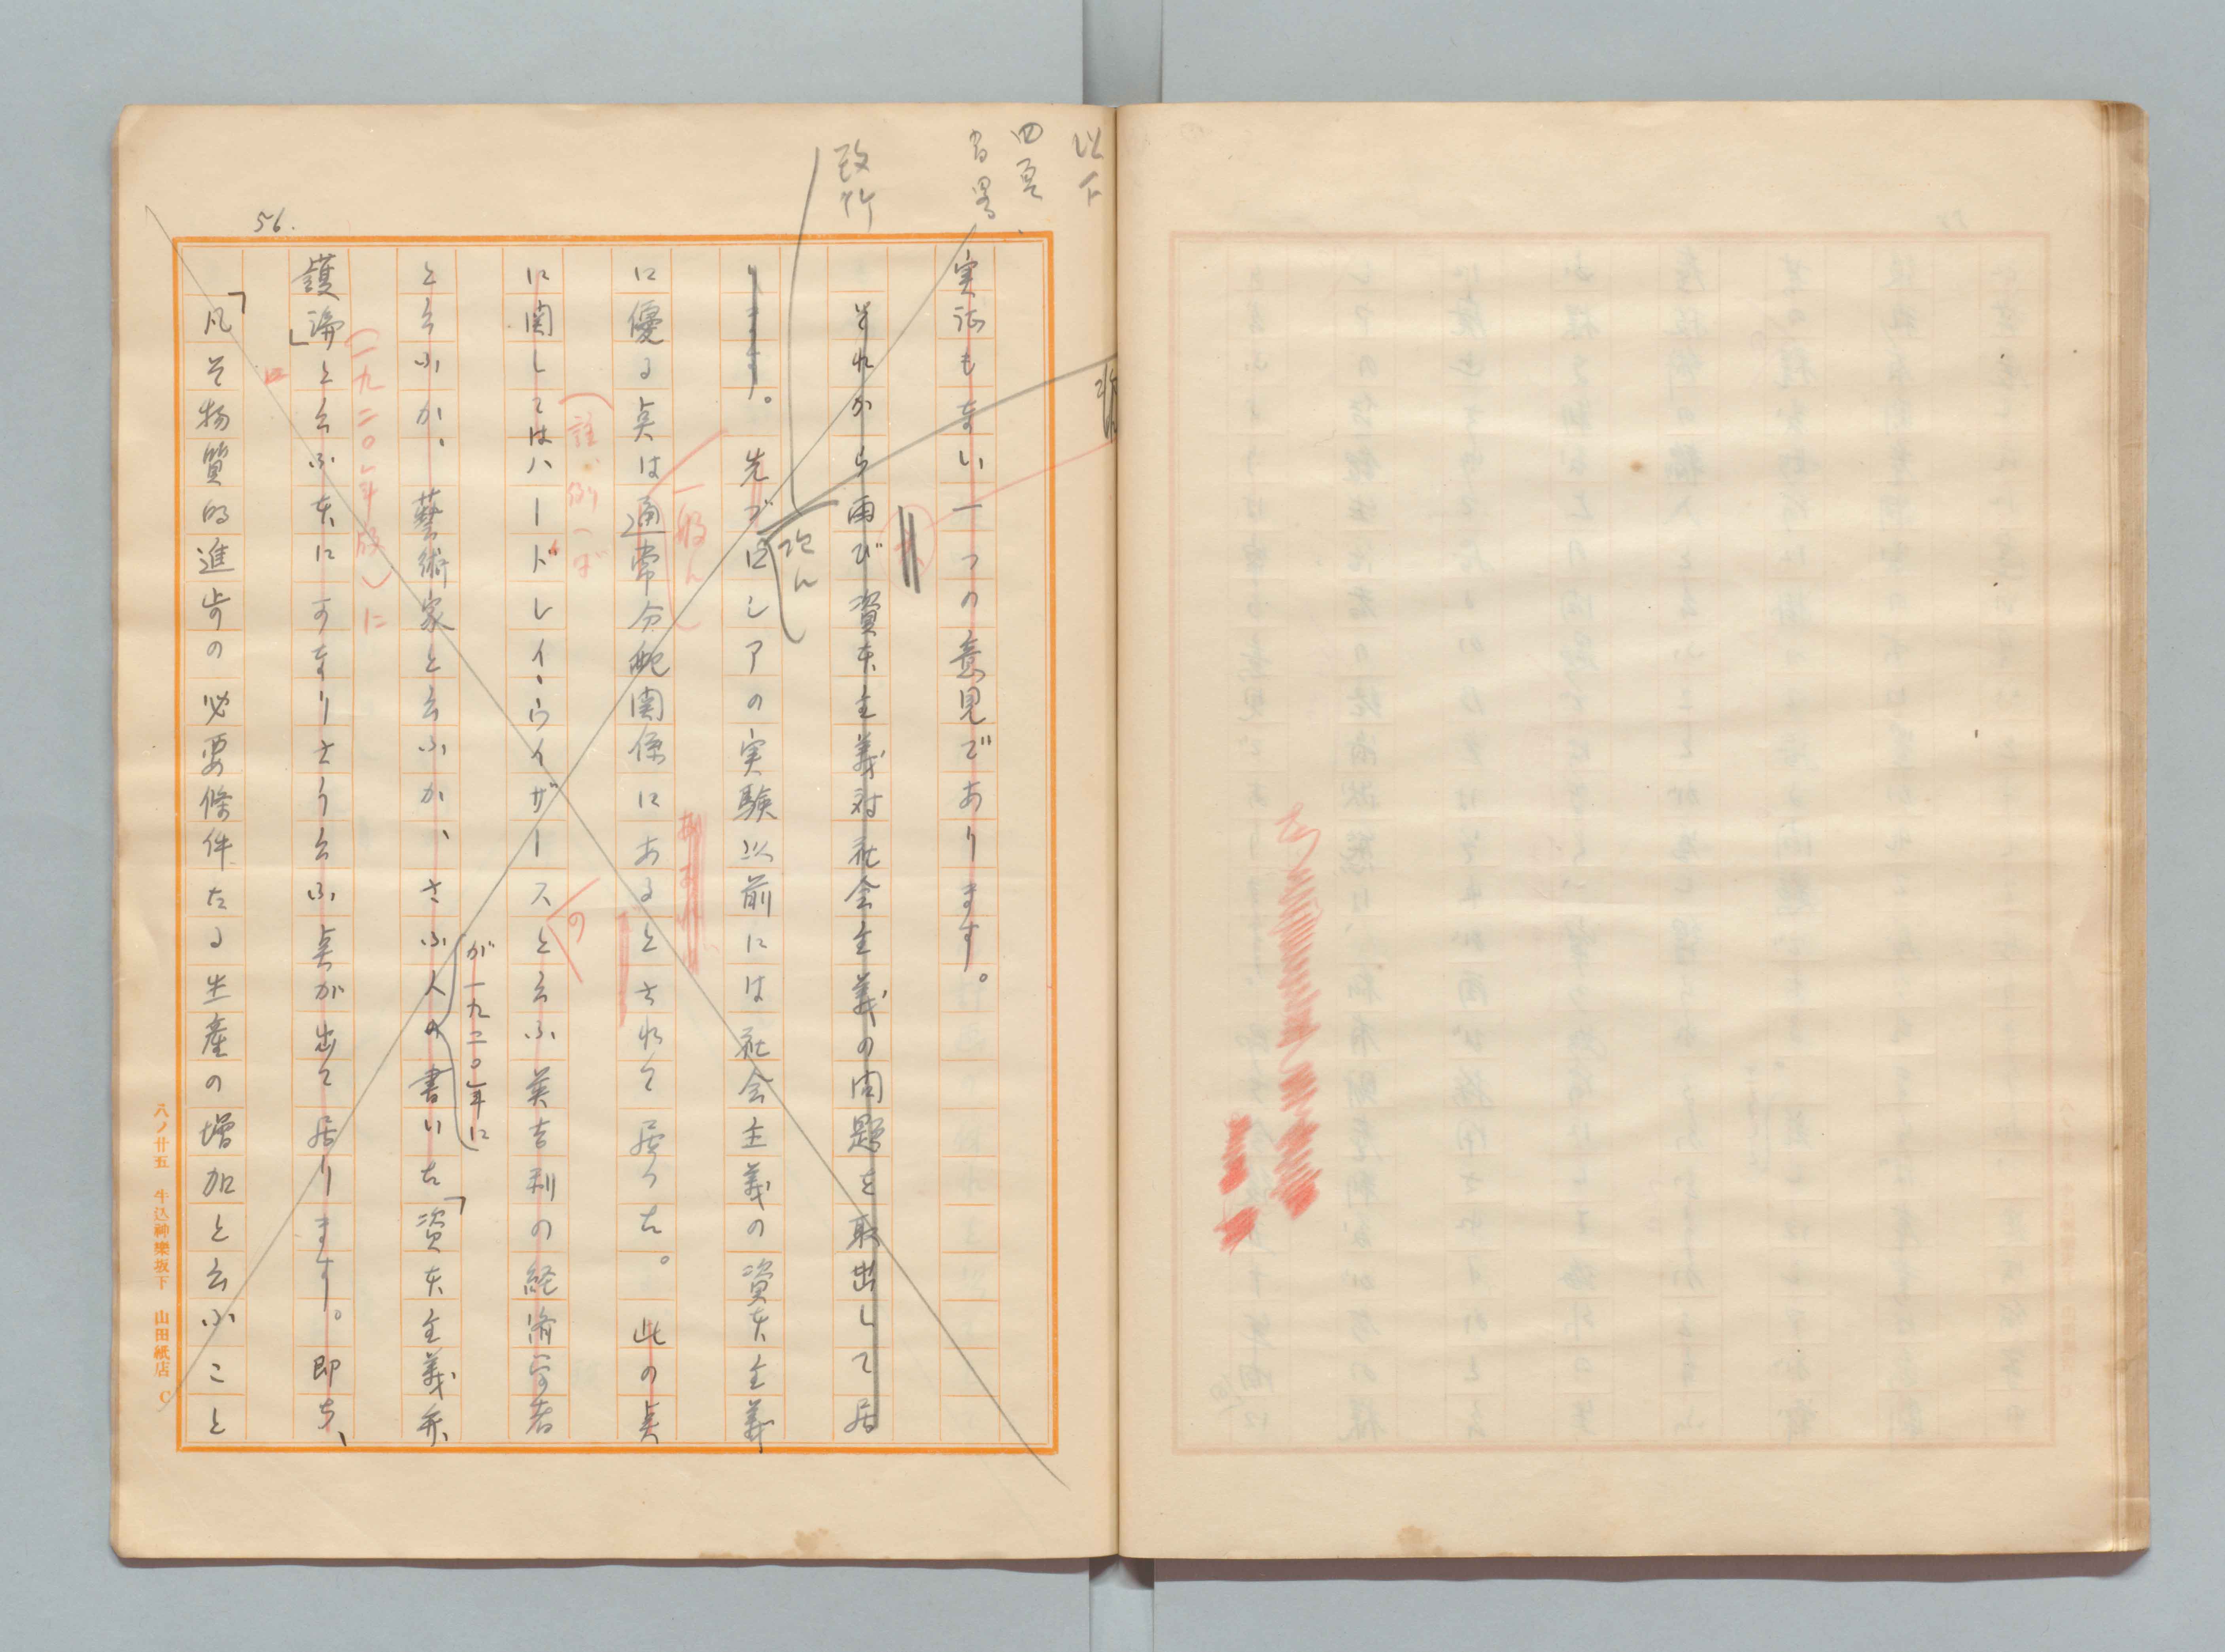 以下
四頁
省畧
改行
56.
実証もない一つの意見であります。
それから再び資本主義対社会主義の問題を取出して居
ります。先づロシアの実験以前には社会主義の資本主義
に優る点は通常分配関係にあるとされて居つた。此の点
一般に
に関してはハードレイ、ウイザースと云ふ英吉利の経済学者
(註、例へば
の
と云ふか、藝術家と云ふか、さふ人の書いた「資本主義弁
が一九二〇年に
護論」と云ふ本に可なりさう云ふ点が出て居ります。即ち、
(一九二〇年版)に
「凡そ物質的進歩の必要條件たる生産の増加と云ふこと
八ノ廿五 牛込神樂坂下 山田紙店 C